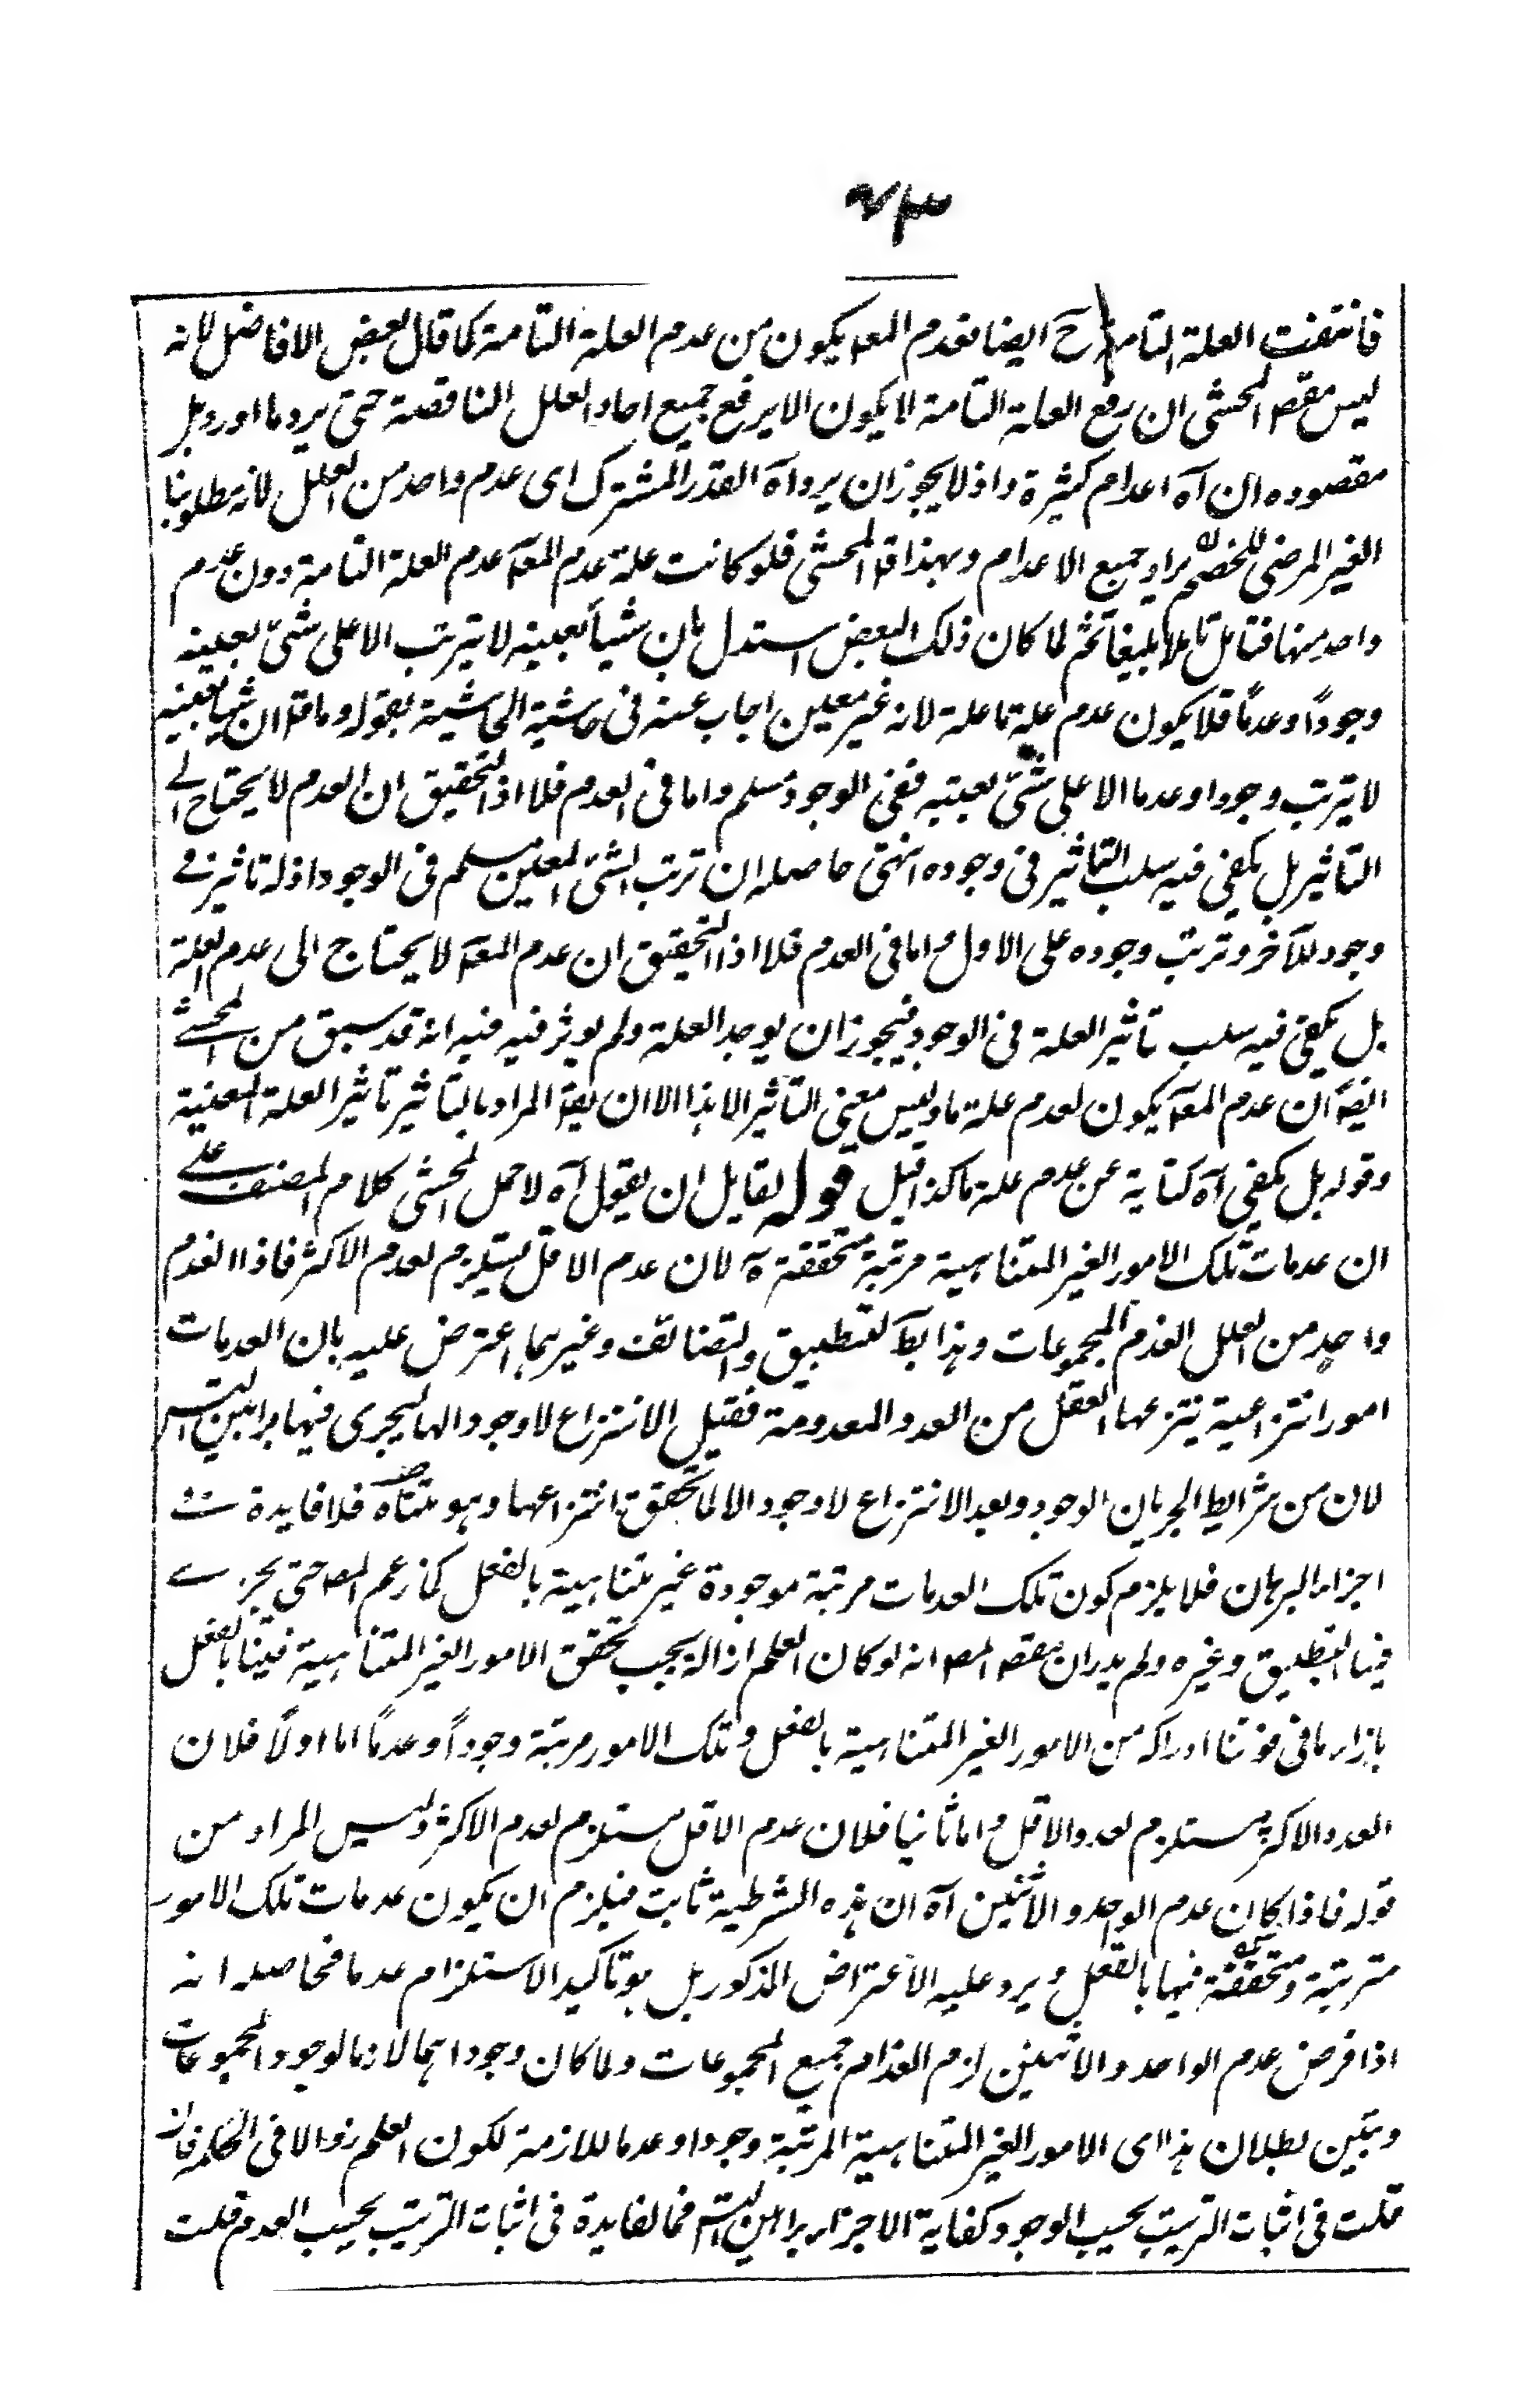 ۷۳
فانتفت العلة التامة ح ايضا فعدم المعه يكون من عدم العلة التامة كما قال بعض الافاضل لانه
ليس مقصـ المحشى ان رفع العلة التامة لا يكون الا برفع جميع احاد العلل الناقصة حتى يرد ما اورد بل
مقصوده ان آه اعدام كثيرة واذ لا يجوز ان يرد آه القدر المشترك اى عدم واحد من العلل لانه مطلوبنا
الغير المرضى للخصم يراد جميع الاعدام وبهذا قه المحشى فلو كانت علة عدم المعه عدم العلة التامة دون عدم
واحد منها فتامل تاملا بليغا ثم لما كان ذلك البعض استدل بان شيأ بعينه لا يترتب الا على شئ بعينه
وجوداً وعدماً فلا يكون عدم علة ما علة لانه غير معين اجاب عنه فى حاشية الحاشية بقوله وما قه ان شيأ بعينه
لا يترتب وجودا وعدما الا على شئ بعينه ففى الوجود مسلم واما فى العدم فلا اذ التحقيق ان العدم لا يحتاج الى
التاثير بل يكفى فيه سلب التاثير فى وجوده انتهى حاصله ان ترتب الشئ المعين مسلم فى الوجود اذ له تاثير فى
وجود للآخر وترتب وجوده على الاول واما فى العدم فلا اذ التحقيق ان عدم المعه لا يحتاج الى عدم العلة
بل يكفى فيه سلب تاثير العلة فى الوجود فيجوز ان يوجد العلة ولم يوثر فيه فيه انه قد سبق من المحشى
ايضاً ان عدم المعه يكون لعدم علة ما وليس معنى التاثير الا هذا الا ان يقه المراد بالتاثير تاثير العلة المعينة
وقوله بل يكفى آه كناية عن عدم علة ما كذا قيل قوله لقايل ان يقول آه لا حمل المحشى كلام المصنف على
ان عدمات تلك الامور الغير المتناهية مرتبة متحققة ة لان عدم الاقل يستلزم لعدم الاكثر فاذا انعدم
واحد من العلل انعدم المجموعات وهذا يطآ لتطبيق والتضائف وغيرهما اعترض عليه بان العدمات
امور انتزاعية ينتزعها العقل من العدد المعدومة فقبل الانتزاع لا وجود الها ليجرى فيها براهين التسـ
لان من شرايط الجريان الوجود وبعد الانتزاع لا وجود الا لما تحقق انتزاعها وهو متناه فلا فايدة فى
اجزاء البرهان فلا يلزم كون تلك العدمات مرتبة موجودة غير متناهية بالفعل كما زعم المصـ حتى يجرى
فيها التطبيق وغيره ولم يدر ان مقصـ المصـ انه لو كان العلم ازالة يجب تحقق الامور الغير المتناهية فينا بالفعل
بازاء ما فى قوتنا ادراكه من الامور الغير المتناهية بالفعل وتلك الامور مرتبة وجوداً وعدماً اما اولاً فلان
العدد الاكثر مستلزم لعدد الاقل واما ثانيا فلان عدم الاقل مستلزم لعدم الاكثر وليس المراد من
قوله فاذا كان عدم الواحد والاثنين آه ان هذه الشرطية ثابت فيلزم ان يكون عدمات تلك الامور
مترتبة ومتحققة فيها بالفعل ويرد عليه الاعتراض المذكور بل هو تاكيد الاستلزام عدما فحاصله انه
اذا فرض عدم الواحد والاثنين لزم انعدام جميع المجموعات ولما كان وجودا هما لازما لوجود المجموعات
وتبين بطلان هذا اى الامور الغير المتناهية المرتبة وجودا وعدما للازمة لكون العلم زوالا فى الحكمة فان
قلت فى اثبات الترتيب بحسب الوجود كفاية الاجراء براهين التسـ فما الفايدة فى اثبات الترتيب بحسب العدم قلت